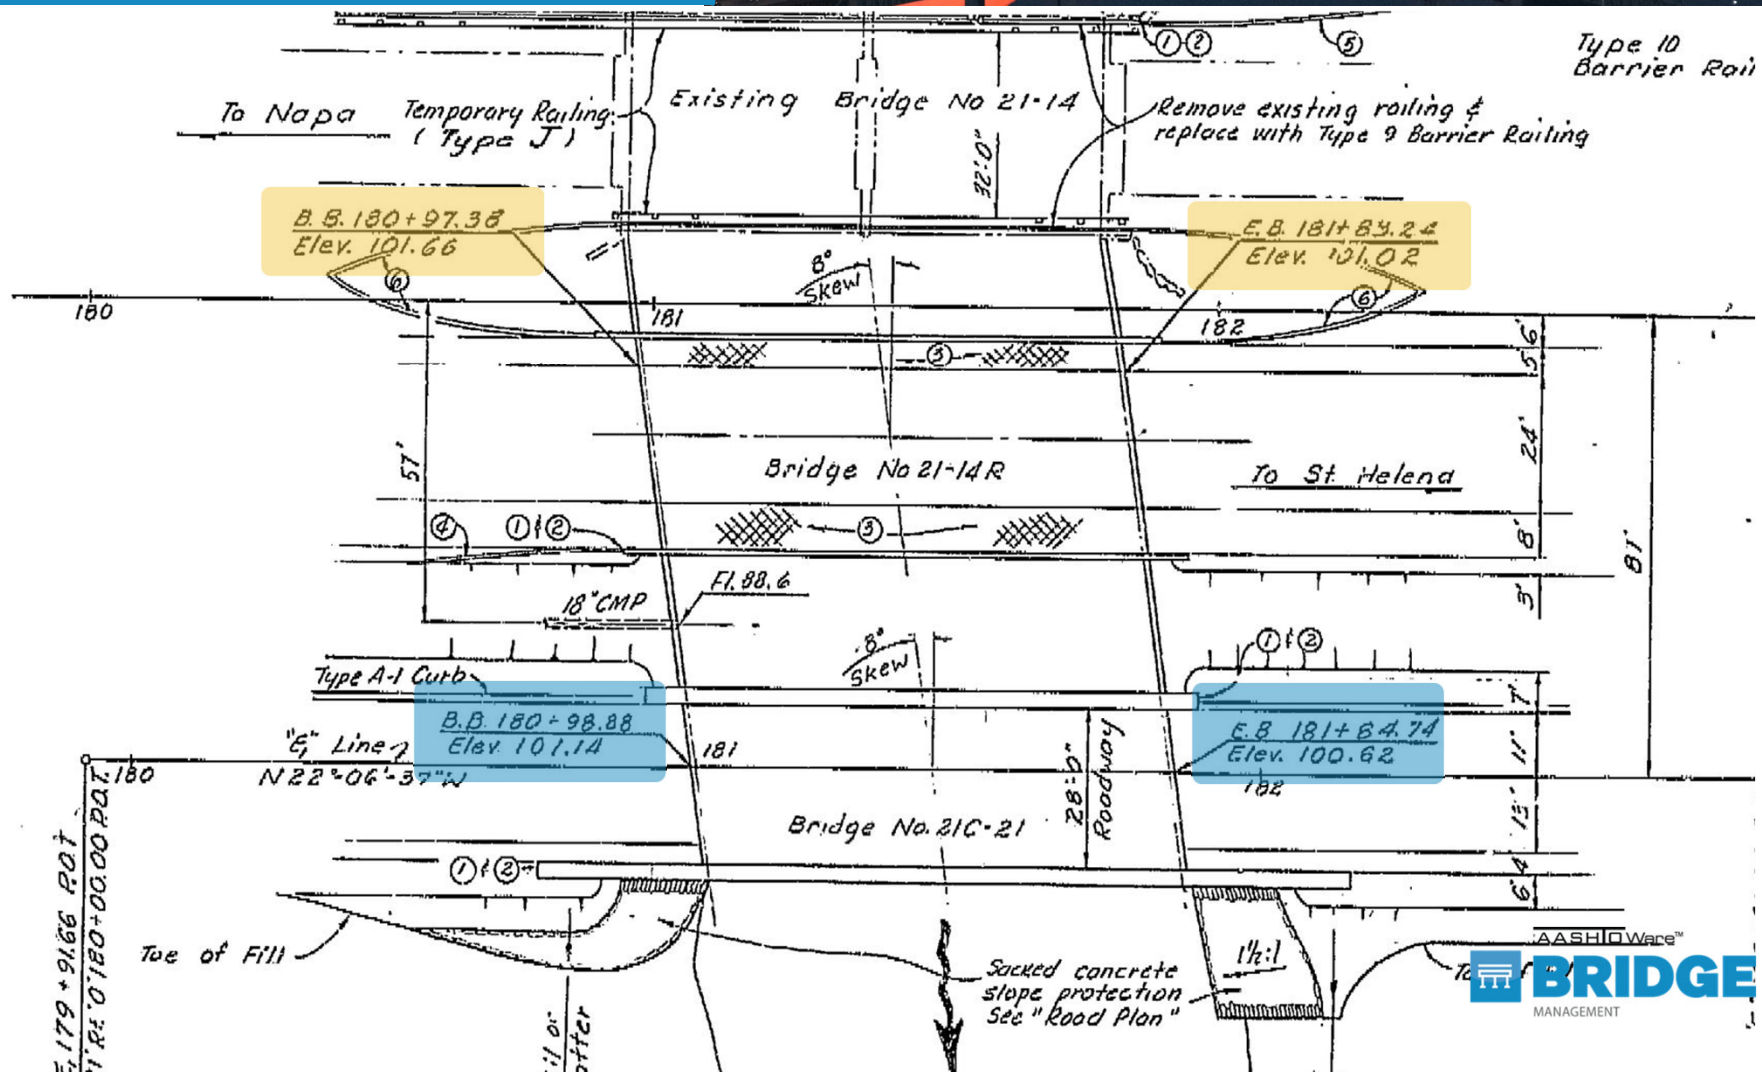 ① ②
⑤
Type 10
Barrier Rail
To Napa
Temporary Railing
(Type J)
Existing Bridge No 21-14
32'-0"
Remove existing railing &
replace with Type 9 Barrier Railing
B.B. 180+97.38
Elev. 101.66
E.B. 181+83.24
Elev. 101.02
8°
Skew
⑥
⑥
180
181
182
③
5' 6'
57'
24'
Bridge No 21-14R
To St. Helena
④
① & ②
③
8'
81'
Fl. 88.6
18" CMP
3'
8°
Skew
① & ②
Type A-1 Curb
7'
B.B. 180+98.88
Elev. 101.14
E.B. 181+84.74
Elev. 100.62
"E" Line
N22°-06'-37"W
180
181
182
11'
28'-0"
Roadway
Bridge No. 21C-21
① & ②
4'
6'
Toe of Fill
Sacked concrete
slope protection
See "Road Plan"
1½:1
AASHTOWare™
BRIDGE
MANAGEMENT